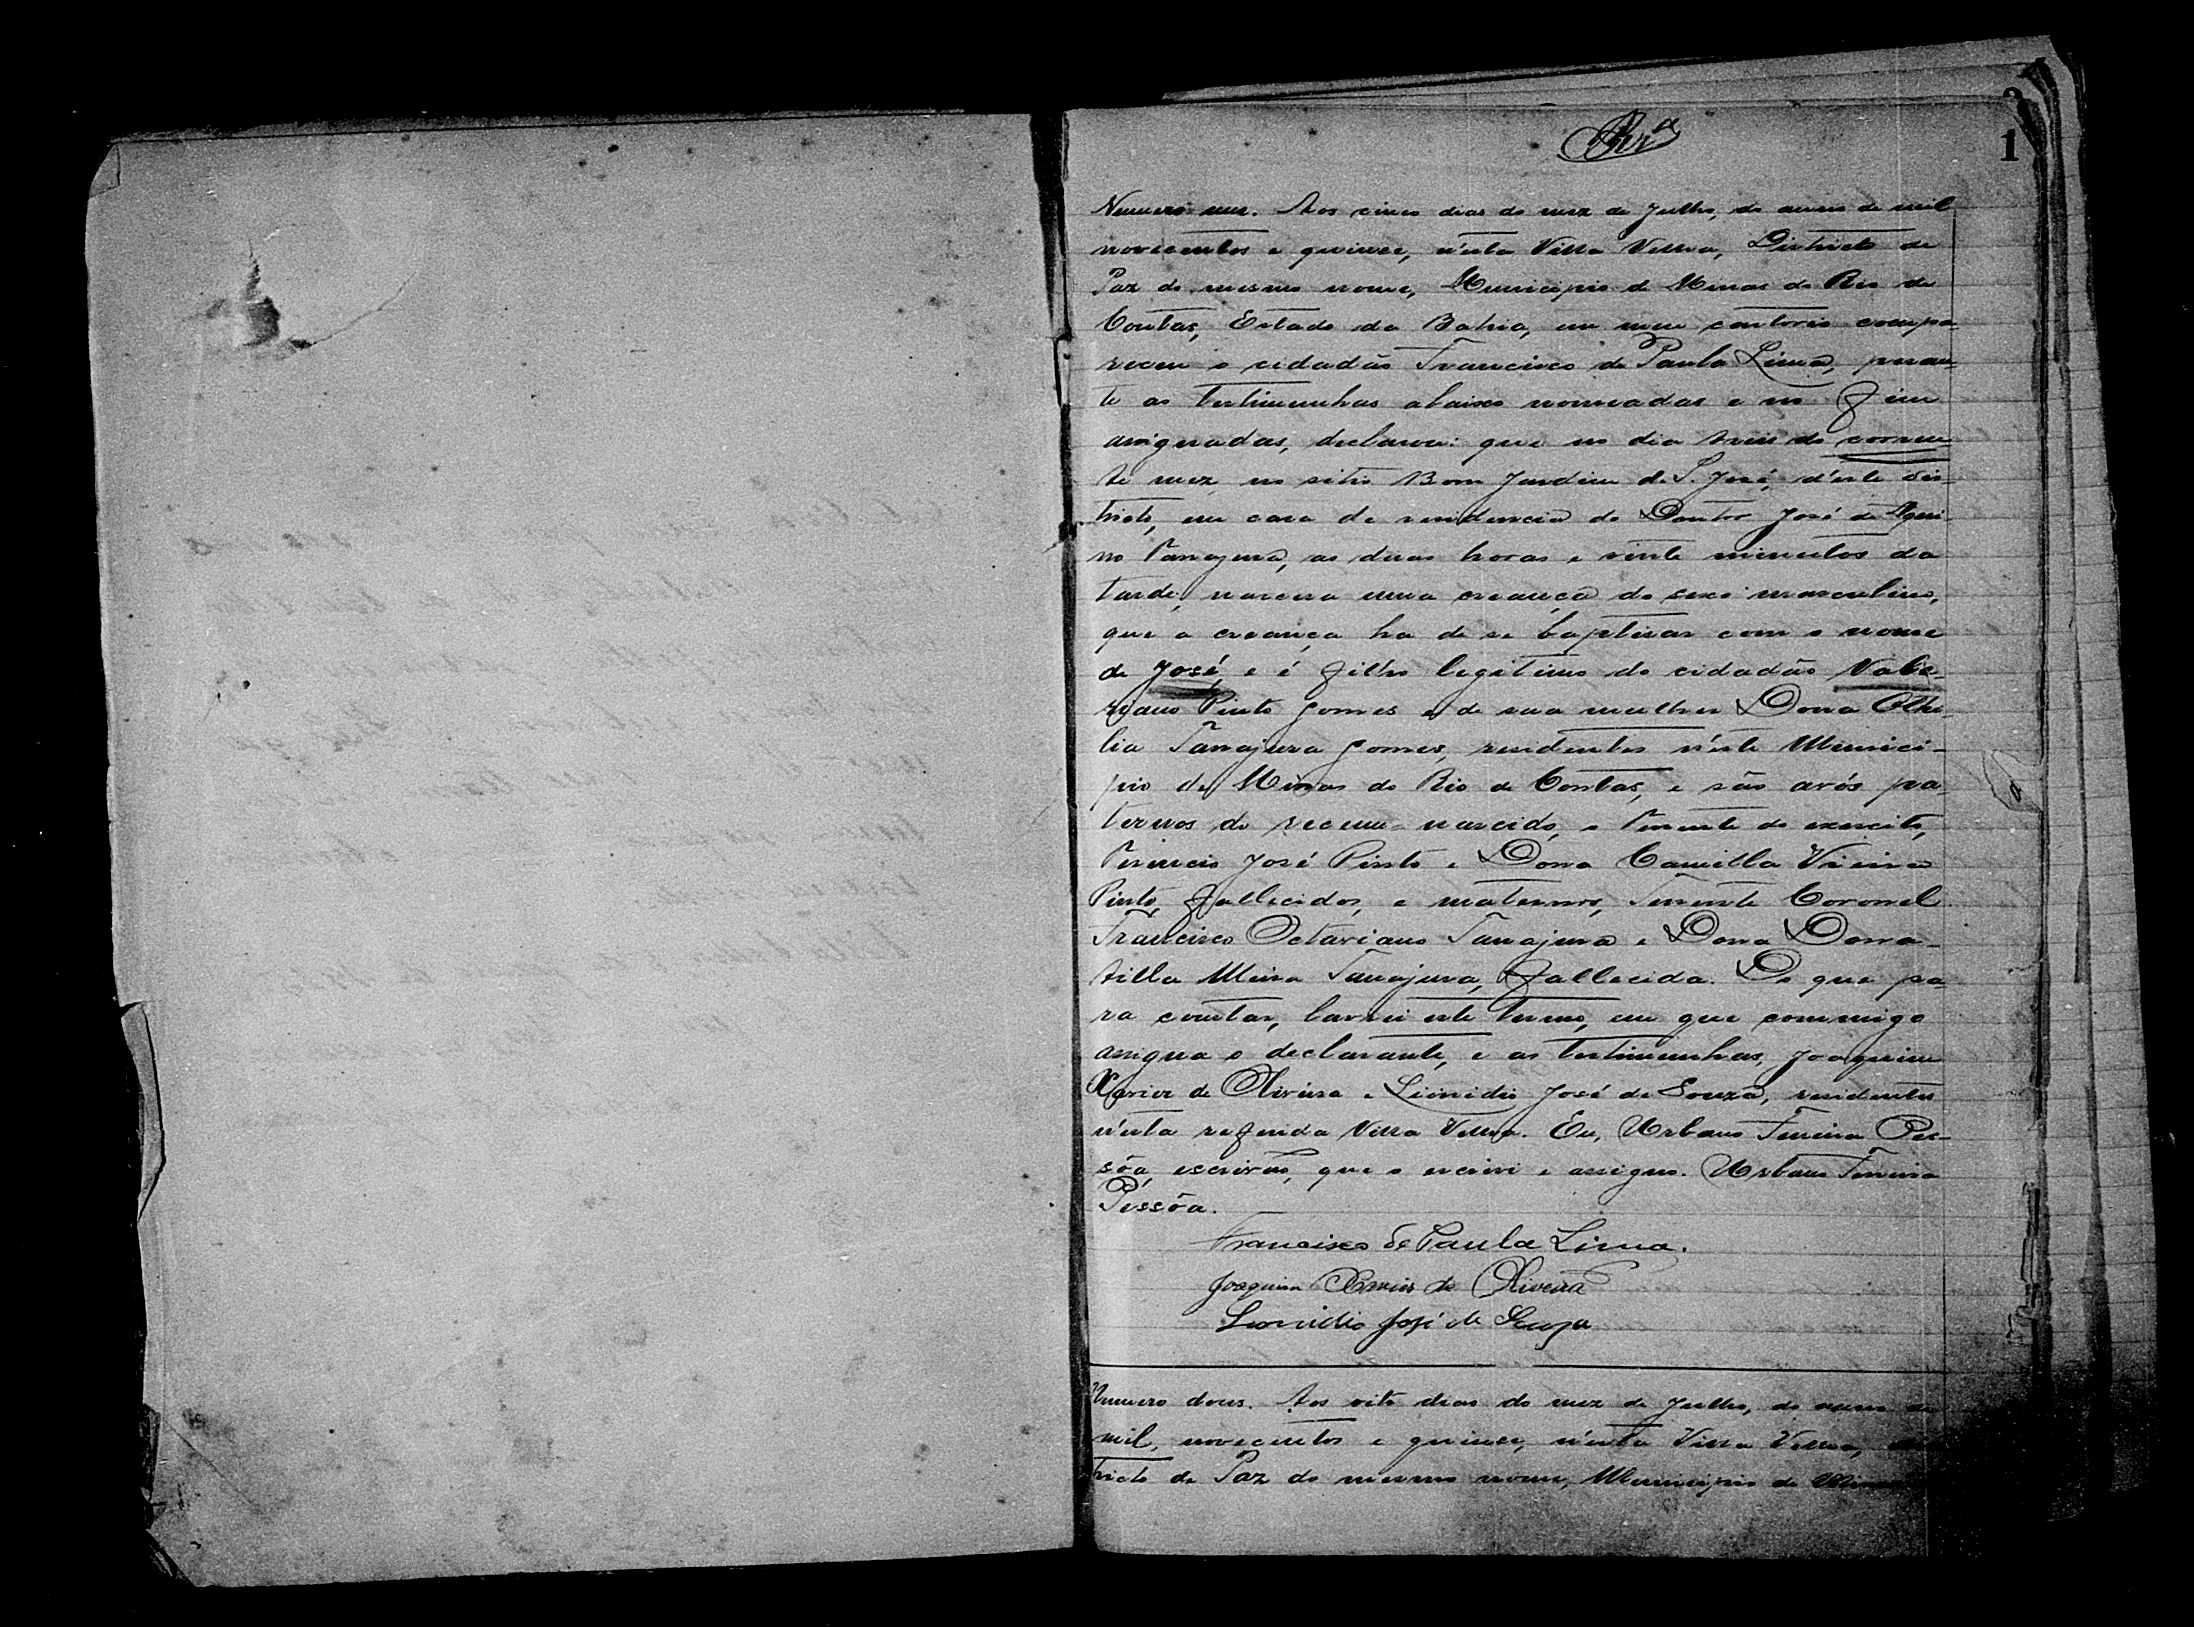 1
Numero um. Aos cinco dias do mez de Julho, do anno de mil
novecentos e quinze, n'esta Villa Velha, Districto de
Paz do mesmo nome, Municipio de Minas do Rio de
Contas, Estado da Bahia, em meu cartorio compa-
receu o cidadão Francisco de Paula Lima, peran-
te as testimunhas abaixo nomeadas e no fim
assignadas, declarou: que no dia treis do corren-
te mez, no sitio Bom Jardim de S. José, d'este dis-
tricto, em casa de residencia do Doutor José de Aqui-
no Tanajura, as duas horas e vinte minutos da
tarde, nascera uma creança do sexo masculino,
que a creança ha de se baptisar com o nome
de José, e é filho legitimo do cidadão Vale-
riano Pinto Gomes e de sua mulher Dona Othi-
lia Tanajura Gomes, residentes n'este Munici-
pio de Minas do Rio de Contas, e são avós pa-
ternos do recem-nascido, o Tenente do exercito,
José Pinto e Dona Camilla Vieira
Pinto, fallecidos, e maternos, Tenente Coronel
Francisco Octaviano Tanajura e Dona Dona-
tilla Meira Tanajura, fallecida. Do que pa-
ra constar, lavrei este termo, em que commigo
assigna o declarante, e as testimunhas, Joaquim
Xavier de Oliveira e Lionidio José de Souza, residentes
n'esta referida Villa Velha. Eu, Urbano Ferreira Pes-
sôa, escrivão, que o escrivi e assigno. Urbano Ferreira
Pessôa.
Francisco de Paula Lima.
Joaquim Xavier de Oliveira
Leonidio José de Souza
Numero dous. Aos oito dias do mez de Julho, do anno de
mil, novecentos e quinze, n'esta Villa Velha,
tricto de Paz do mesmo nome, Municipio de Minas